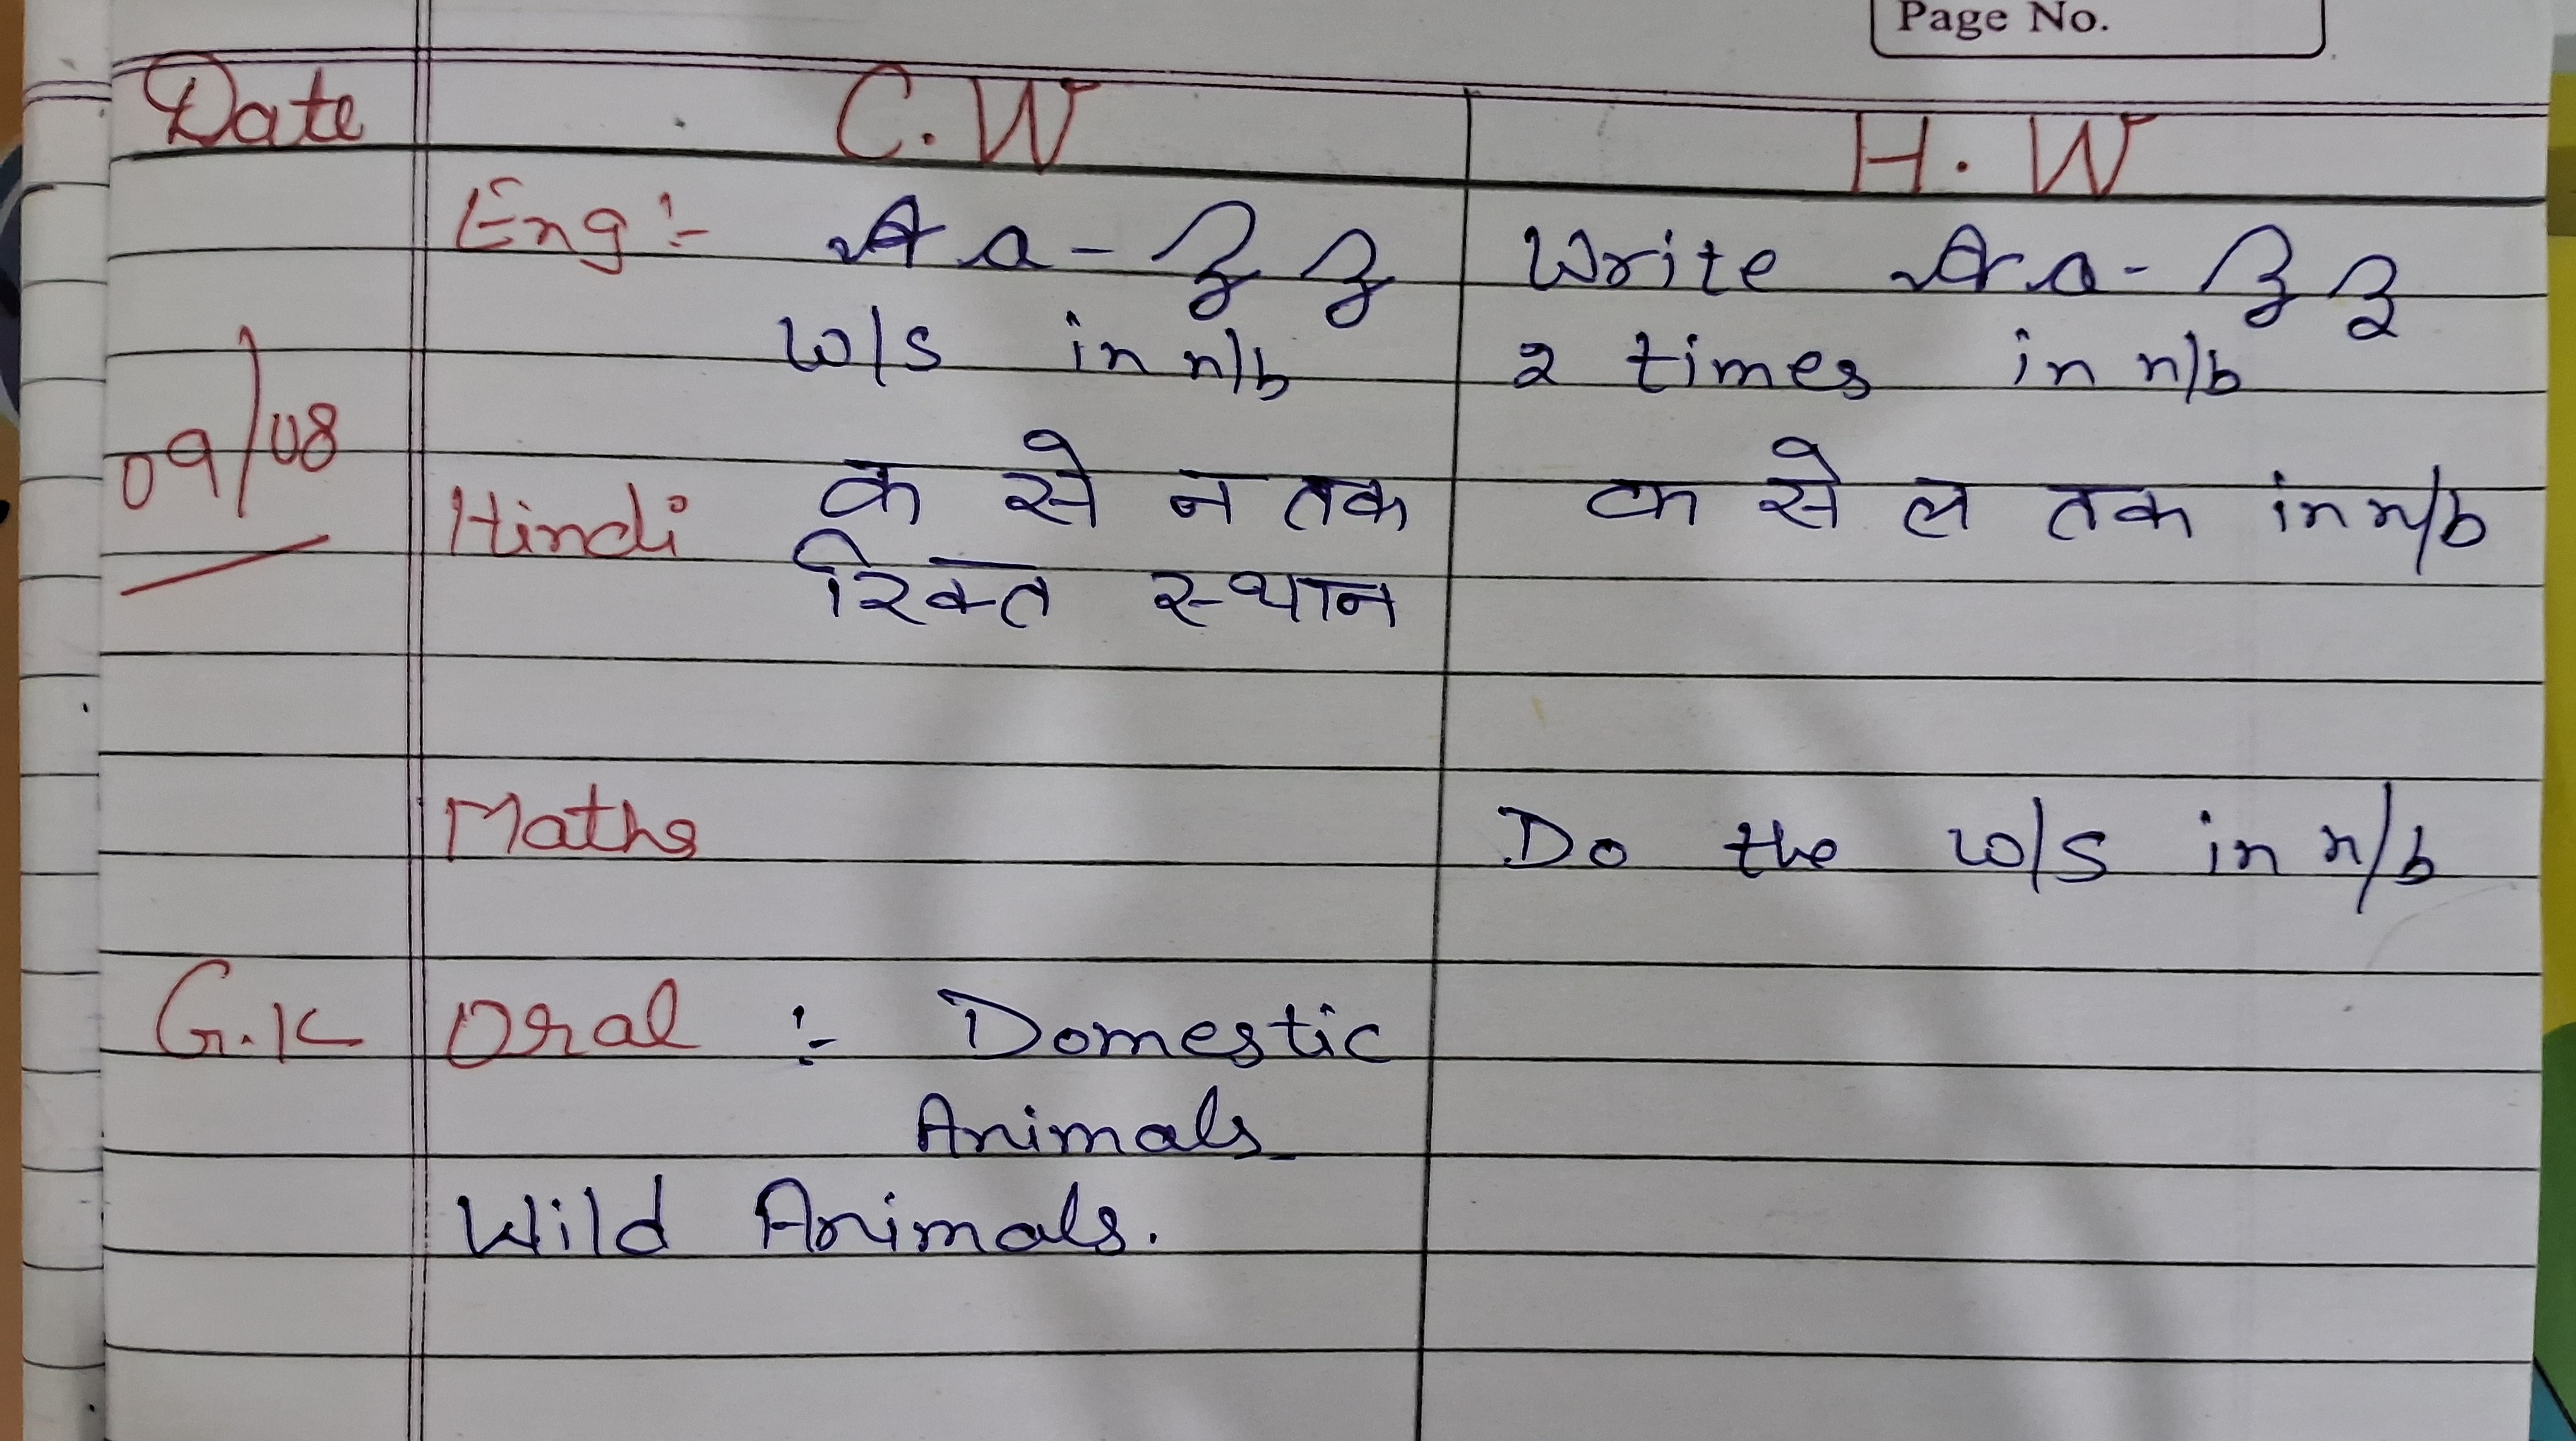 Page No.
Date C.W H.W
Eng :- A a - Z z Write A a - Z z
w/s in n/b 2 times in n/b
09/08
Hindi क से न तक क से ल तक in n/b
रिक्त स्थान
Maths Do the w/s in n/b
G.K Oral :- Domestic
Animals
Wild Animals.